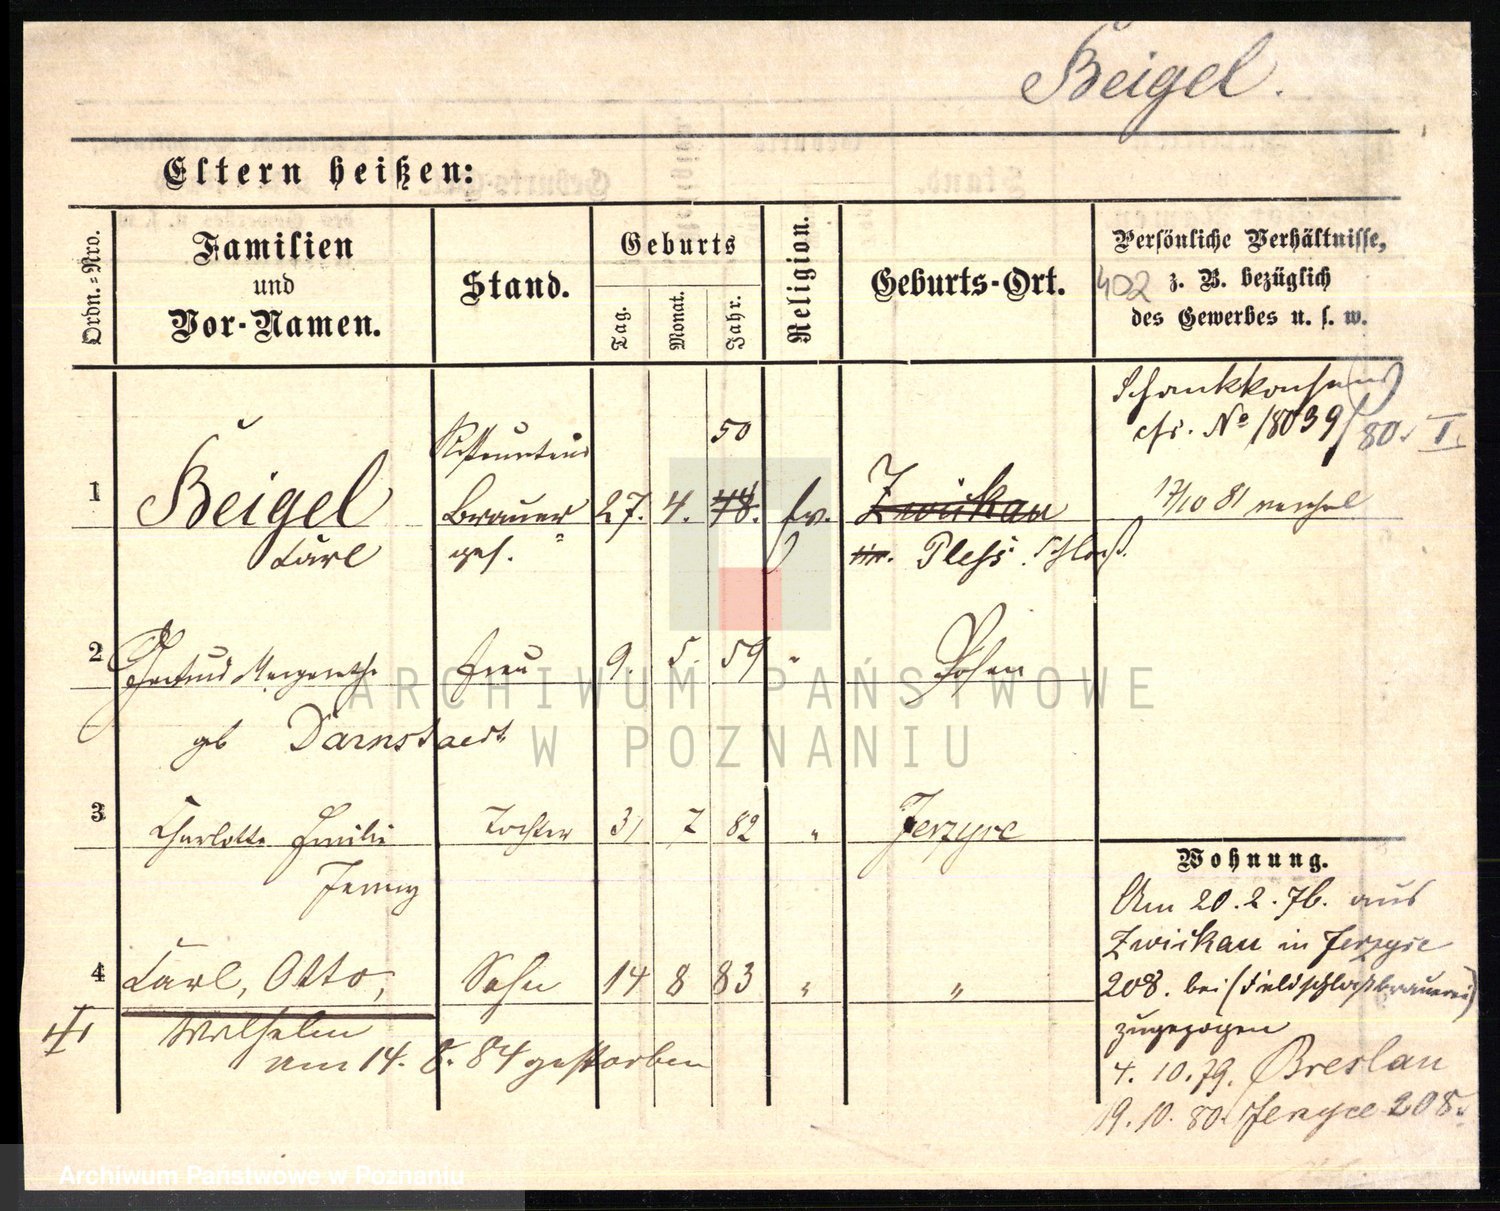 Beigel.
Eltern heißen:
Ordn.=Nro.
Familien
und
Vor-Namen.
Stand.
Geburts
Tag.
Monat.
Jahr.
Religion.
Geburts-Ort.
Persönliche Verhältnisse,
402 z. B. bezüglich
des Gewerbes u. s. w.
Schankkonsens
cfr. No 18039/80. I.
1 Beigel Brauer 27. 4. 50 48. ev. Zwickau
Carl Pless. Schloß.
17/10 81
2 Gertrud Margarethe Frau 9. 5. 59 " Posen
geb Darnstaedt
3 Charlotte Emilie Tochter 31 82 " Jerzyce
Jenny
4 Carl, Otto, Sohn 14 8 83 " "
Wilhelm
am 14. 8. 84 gestorben
Wohnung.
Am 20. 2. 76. aus
Zwickau in Jerzyce
208. bei (Feldschloßbrauerei)
zugezogen
4. 10. 79. Breslau
19. 10. 80. Jerzyce 208.
ARCHIWUM PAŃSTWOWE
W POZNANIU
Archiwum Państwowe w Poznaniu